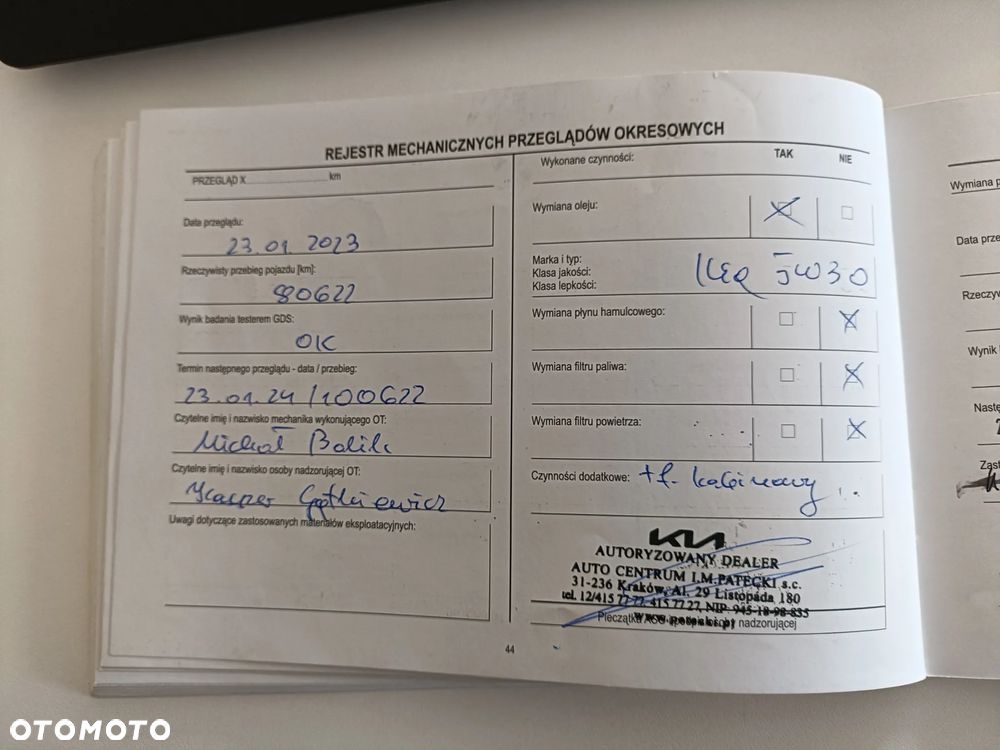 REJESTR MECHANICZNYCH PRZEGLĄDÓW OKRESOWYCH
PRZEGLĄD X km
Data przeglądu:
23.01.2023
Rzeczywisty przebieg pojazdu [km]:
80622
Wynik badania testerem GDS:
OK
Termin następnego przeglądu - data / przebieg:
23.01.24/100622
Czytelne imię i nazwisko mechanika wykonującego OT:
Michał
Czytelne imię i nazwisko osoby nadzorującej OT:
Kasper
Uwagi dotyczące zastosowanych materiałów eksploatacyjnych:
Wykonane czynności: TAK NIE
Wymiana oleju:
Marka i typ:
Klasa jakości:
Klasa lepkości:
5W30
Wymiana płynu hamulcowego:
Wymiana filtru paliwa:
Wymiana filtru powietrza:
Czynności dodatkowe: + f. kabinowy
KIA
AUTORYZOWANY DEALER
AUTO CENTRUM I.M.PATECKI s.c.
31-236 Kraków, Al. 29 Listopada 180
tel. 12/415 77 77, 415 77 27, NIP: 945-18-98-835
www.patecki.pl
Pieczątka nadzorującej
44
Wymiana
Data prze
Rzeczyw
Wynik
Nastę
OTOMOTO